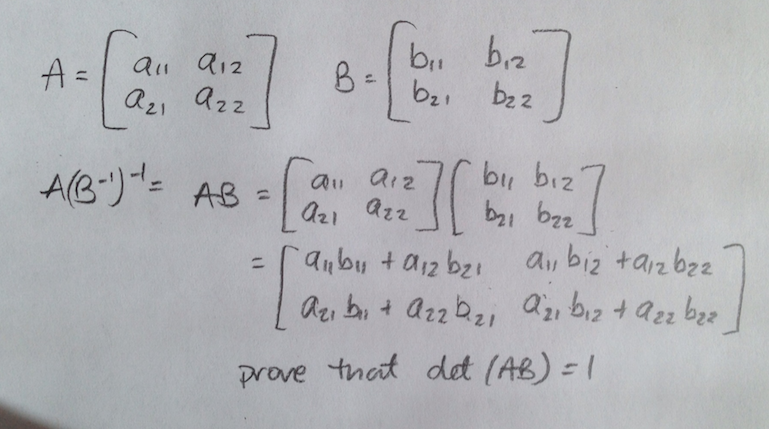 A = [a₁₁ a₁₂ B = [b₁₁ b₁₂
a₂₁ a₂₂] b₂₁ b₂₂]
A(B⁻¹)⁻¹ = AB = [a₁₁ a₁₂ [b₁₁ b₁₂
a₂₁ a₂₂] b₂₁ b₂₂]
= [a₁₁b₁₁ + a₁₂b₂₁ a₁₁b₁₂ + a₁₂b₂₂
a₂₁b₁₁ + a₂₂b₂₁ a₂₁b₁₂ + a₂₂b₂₂]
prove that det (AB) = 1